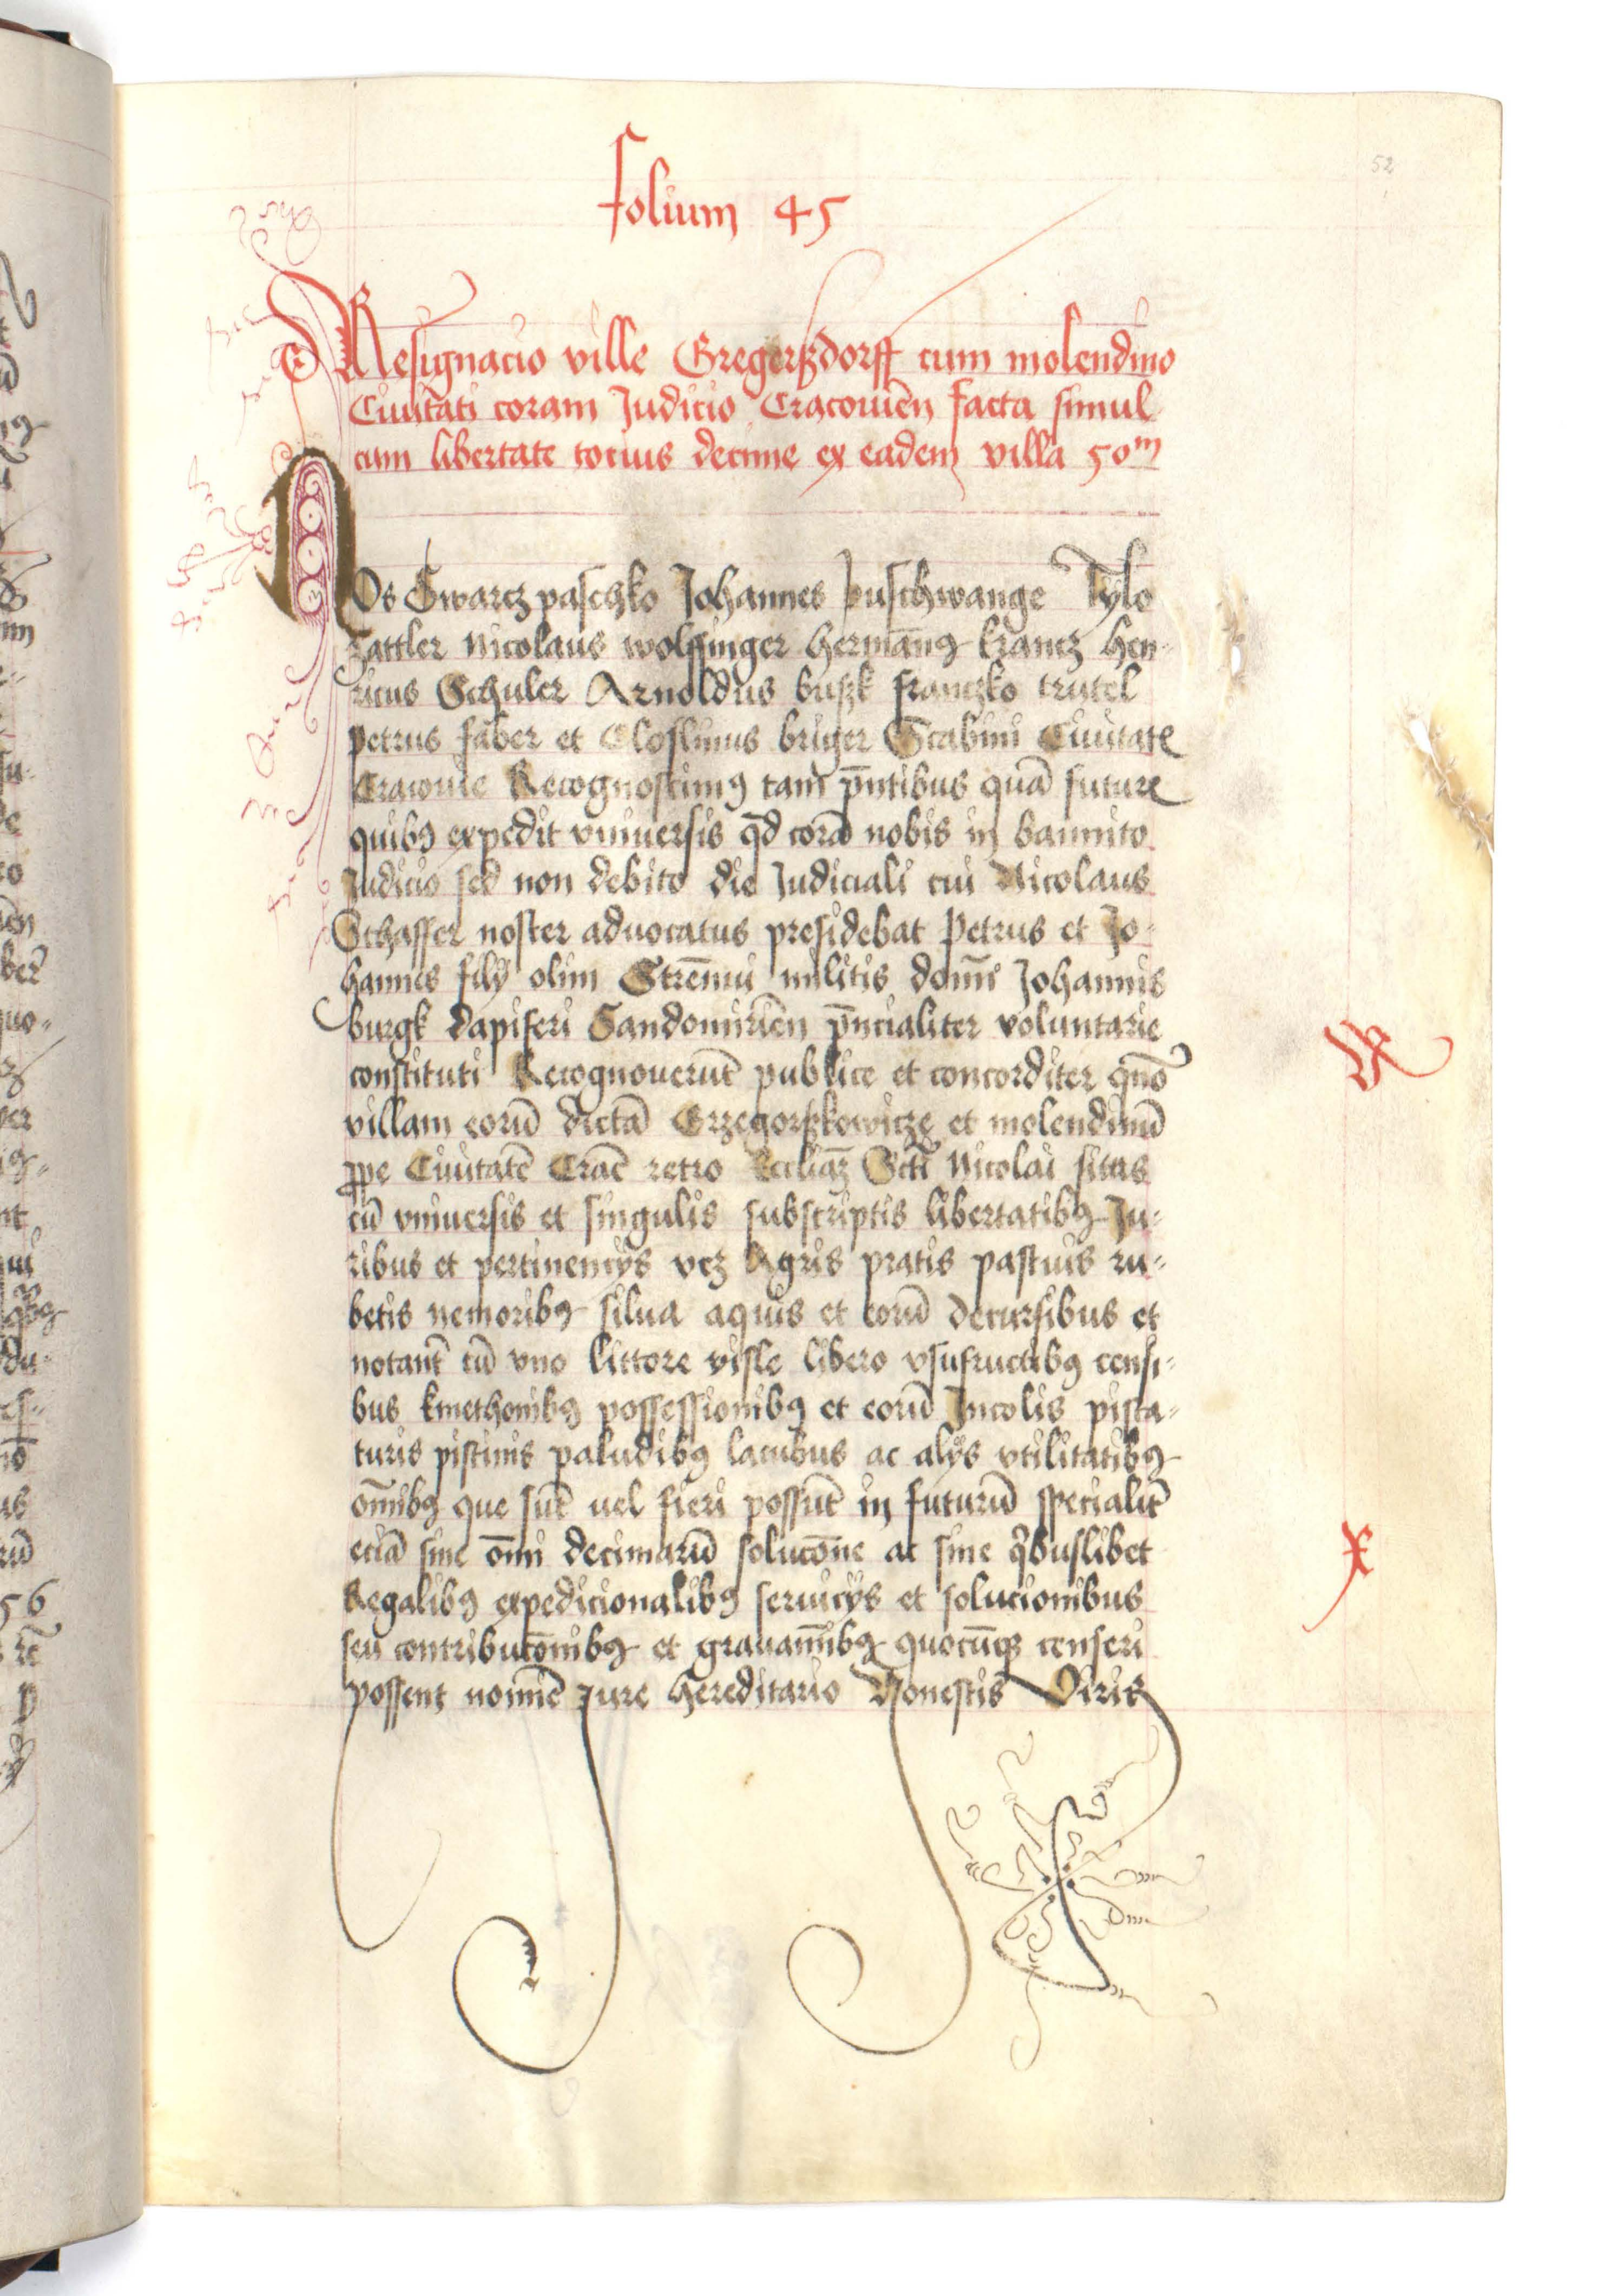 52
folium 45
Resignacio ville Gregerßdorff cum molendino
Ciuitati coram Judicio Cracouien̄ facta simul
cum libertate tocius decime ex eadem villa 50m
Nos Swarcz paschko Johannes puschwange Tylo
zattler Nicolaus wolffinger hermān9 krancz hen-
ricus Schuler Arnoldus buszk franczko trutel
petrus faber et Closlinus briger Scabini Ciuitate
Cracouie Recognoscim9 tam p̄ntibus quā future
quib9 expedit vniuersis qd corā nobis in bannito
Judicio sed non debito die Judiciali cui Nicolaus
Schaffer noster aduocatus presidebat Petrus et Jo-
hannes filÿ olim Strēnui militis domī Johannis
burgk dapiferi Sandomirien̄ p̄ncialiter voluntarie
constituti Recognouerūt publice et concorditer quō
villam eorū dictā Grzegorßkowicze et molendinū
ꝓpe Ciuitatē Crac̄ retro Eccliaꝫ Scti Nicolai sitas
cū vniuersis et singulis subscriptis libertatib9 Ju-
ribus et pertinencÿs vcz Agris pratis pascuis ru-
betis nemorib9 silua aquis et eorū decursibus et
notant̄ cū vno littore visle libero vsufructib9 censi-
bus kmethonib9 possessionib9 et eorū Jncolis pisca-
turis piscinis paludib9 lacubus ac alÿs vtilitatib9
om̄ib9 que sūt uel fieri possūt in futurū specialit̄
eciā sine om̄i decimarū solucōne ac sine qͥbuslibet
Regalib9 expedicionalib9 seruicÿs et solucionibus
seu contribucōnib9 et grauamīb9 quocūqꝫ censeri
possent nomiē Jure hereditario Honestis Viris